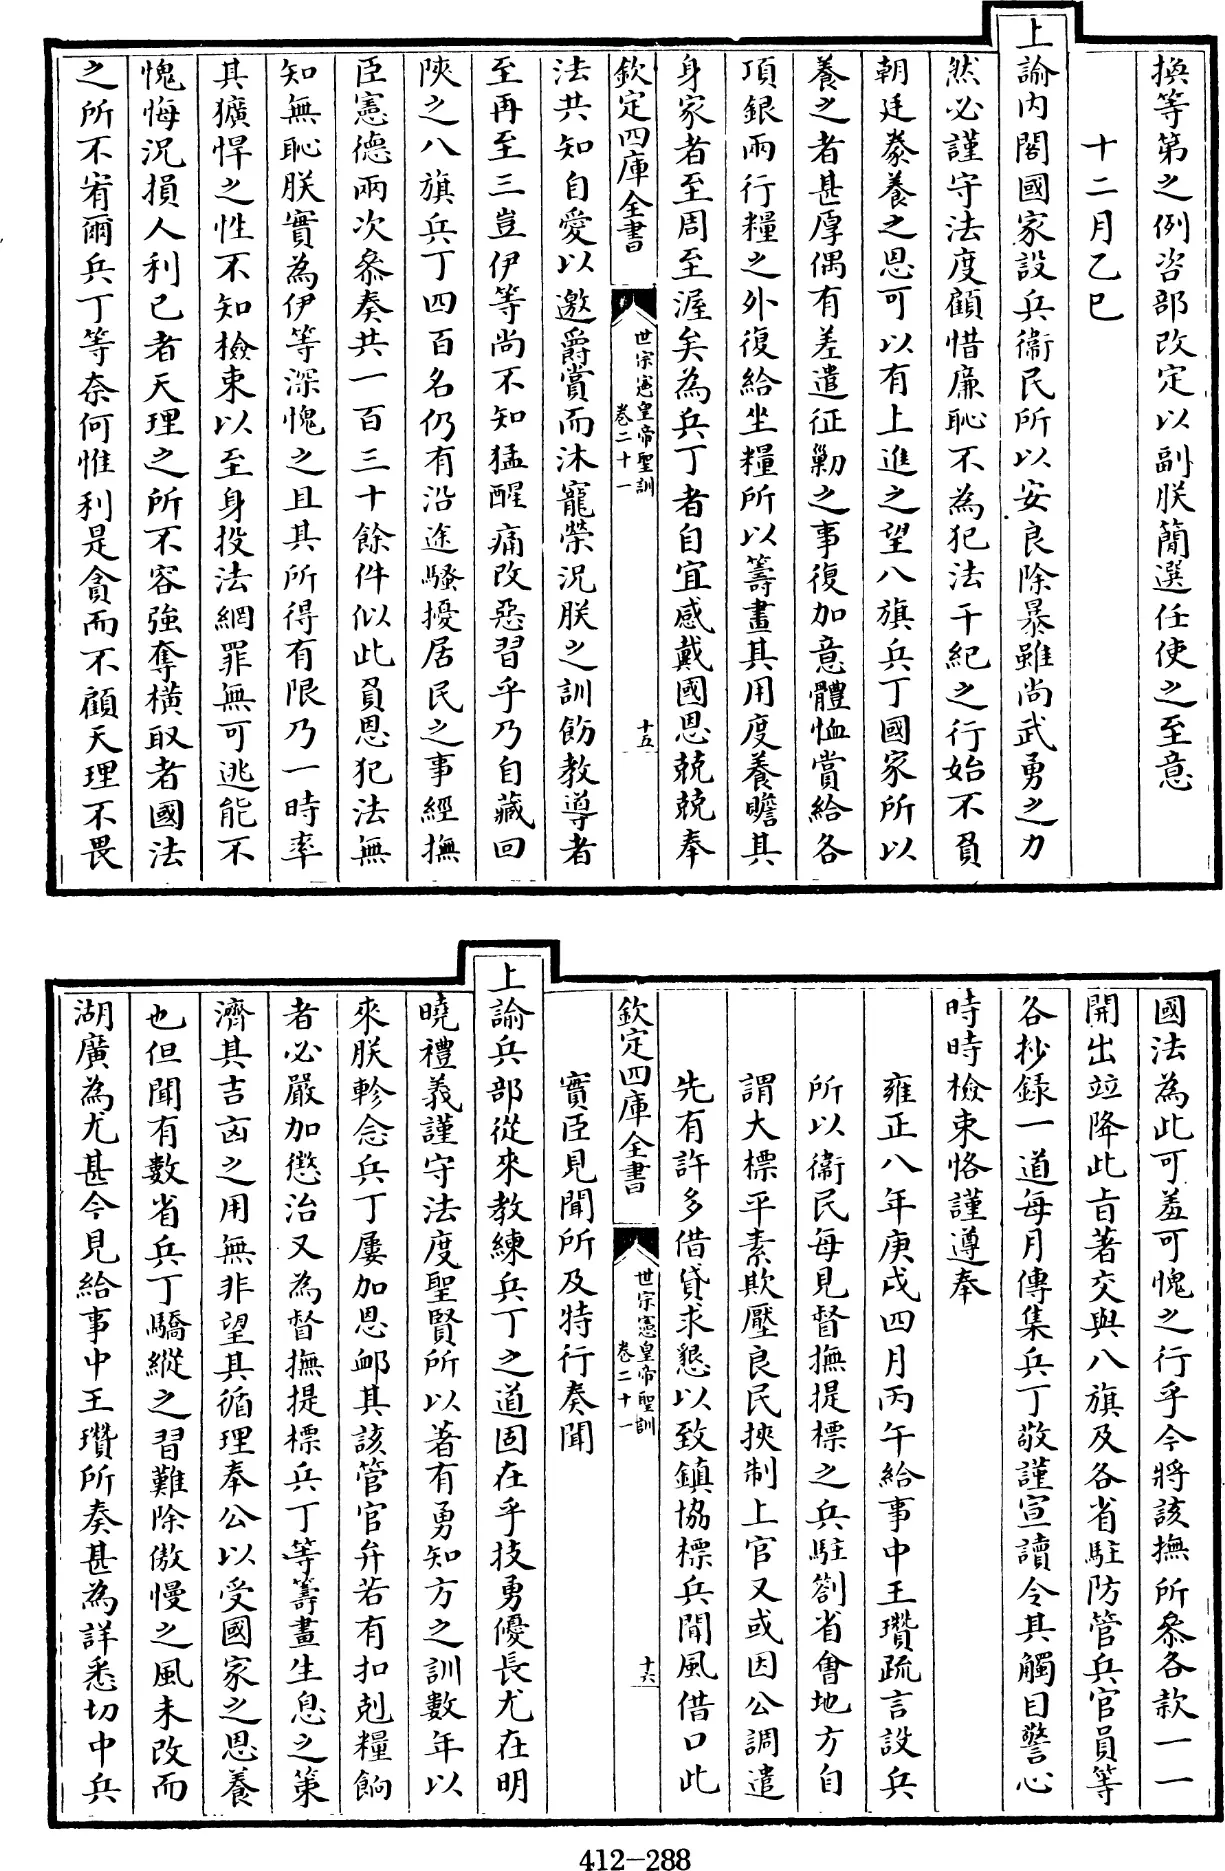 換等第之例咨部改定以副朕簡選任使之至意
十二月乙巳
上諭内閣國家設兵衞民所以安良除暴雖尚武勇之力
然必謹守法度顧惜廉恥不為犯法干紀之行始不負
朝廷豢養之恩可以有上進之望八旗兵丁國家所以
養之者甚厚偶有差遣征勦之事復加意體恤賞給各
項銀兩行糧之外復給坐糧所以籌畫其用度養贍其
身家者至周至渥矣為兵丁者自宜感戴國恩兢兢奉
欽定四庫全書
世宗憲皇帝聖訓
卷二十一
十五
法共知自愛以邀爵賞而沐寵榮況朕之訓飭教導者
至再至三豈伊等尚不知猛醒痛改惡習乎乃自藏回
陜之八旗兵丁四百名仍有沿途騷擾居民之事經撫
臣憲德兩次叅奏共一百三十餘件似此負恩犯法無
知無恥朕實為伊等深愧之且其所得有限乃一時率
其獷悍之性不知檢束以至身投法網罪無可逃能不
愧悔況損人利已者天理之所不容強奪橫取者國法
之所不宥爾兵丁等奈何惟利是貪而不顧天理不畏
國法為此可羞可愧之行乎今將該撫所叅各款一一
開出竝降此㫖著交與八旗及各省駐防管兵官員等
各抄錄一道每月傳集兵丁敬謹宣讀令其觸目警心
時時檢束恪謹遵奉
雍正八年庚戌四月丙午給事中王瓚疏言設兵
所以衞民每見督撫提標之兵駐劄省會地方自
謂大標平素欺壓良民挾制上官又或因公調遣
先有許多借貸求懇以致鎮協標兵聞風借口此
欽定四庫全書
世宗憲皇帝聖訓
卷二十一
十六
實臣見聞所及特行奏聞
上諭兵部從來教練兵丁之道固在乎技勇優長尤在明
曉禮義謹守法度聖賢所以著有勇知方之訓數年以
來朕軫念兵丁屢加恩䘏其該管官弁若有扣剋糧餉
者必嚴加懲治又為督撫提標兵丁等籌畫生息之策
濟其吉㐫之用無非望其循理奉公以受國家之恩養
也但聞有數省兵丁驕縱之習難除傲慢之風未改而
湖廣為尤甚今見給事中王瓚所奏甚為詳悉切中兵
412-288